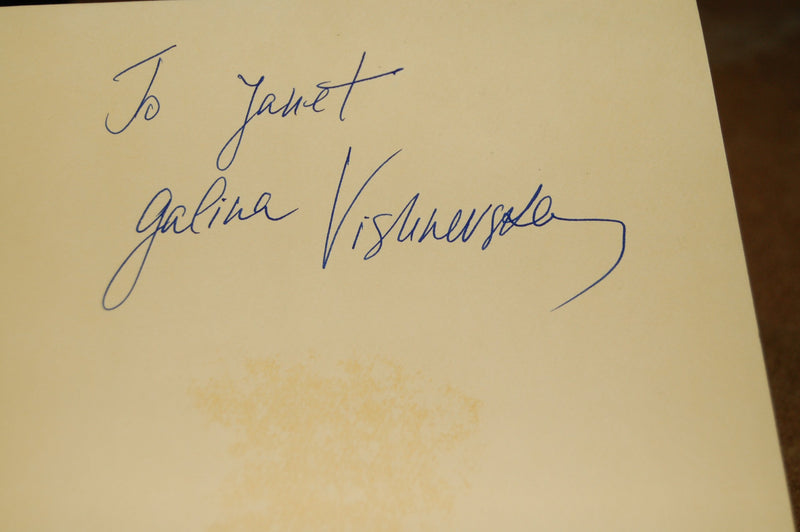 To Janet
Galina Vishnevskaya